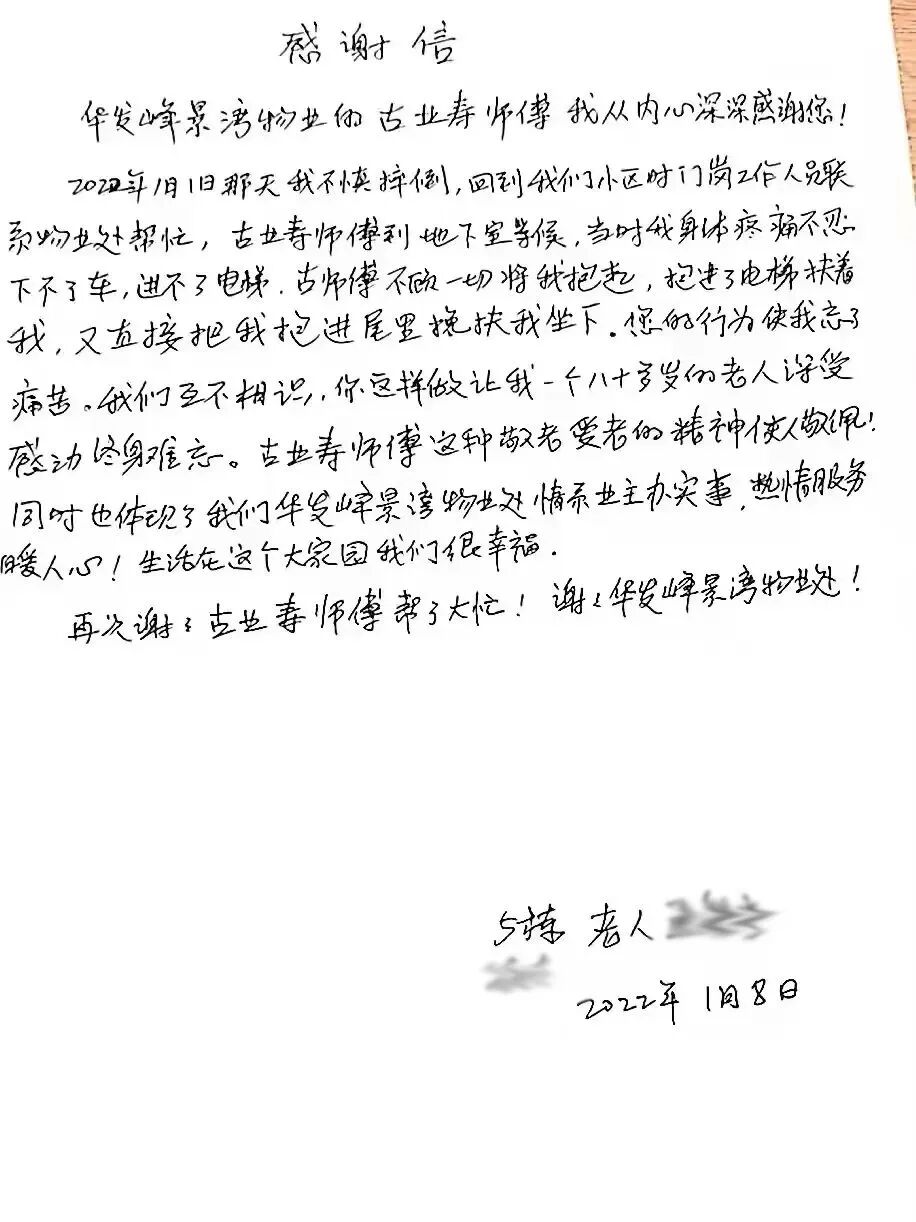 感谢信
华发峰景湾物业的古业寿师傅我从内心深深感谢您!
2022年1月1日那天我不慎摔倒,回到我们小区时门岗工作人员联
系物业处帮忙,古业寿师傅到地下室等候,当时我身体疼痛不忍
下不了车,进不了电梯.古师傅不顾一切将我抱起,抱进了电梯扶着
我,又直接把我抱进屋里搀扶我坐下。您的行为使我忘了
痛苦。我们互不相识,你这样做让我一个八十多岁的老人深受
感动终身难忘。古业寿师傅这种敬老爱老的精神使人敬佩!
同时也体现了我们华发峰景湾物业处情系业主办实事,热情服务
暖人心!生活在这个大家园我们很幸福.
再次谢谢古业寿师傅帮了大忙!谢谢华发峰景湾物业处!
5栋 老人
2022年1月8日